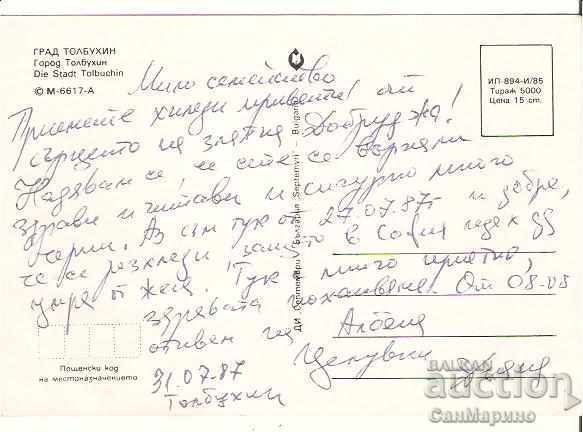 ГРАД ТОЛБУХИН
Город Толбухин
Die Stadt Tolbuchin
© М-6617-А
ИП-894-И/85
Тираж 5000
Цена 15 ст.
Мило семейство
Приемете хиляди привети! от
сърцето на златна Добруджа!
Надявам се, че сте се върнали
здрави и читави и сигурно много
черни. Аз съм тук от 27.07.87г. и добре,
че се разхлади защото в София щях да
умра от жега. Тук е много приятно,
здравата похапваме. От 08.08
отивам на Албена
Целувки
31.07.87
Толбухин
ДИ „Септември“ България „Septemvri“ - Bulgaria
Пощенски код
на местоназначението
BALKAN
auction
СанМарино